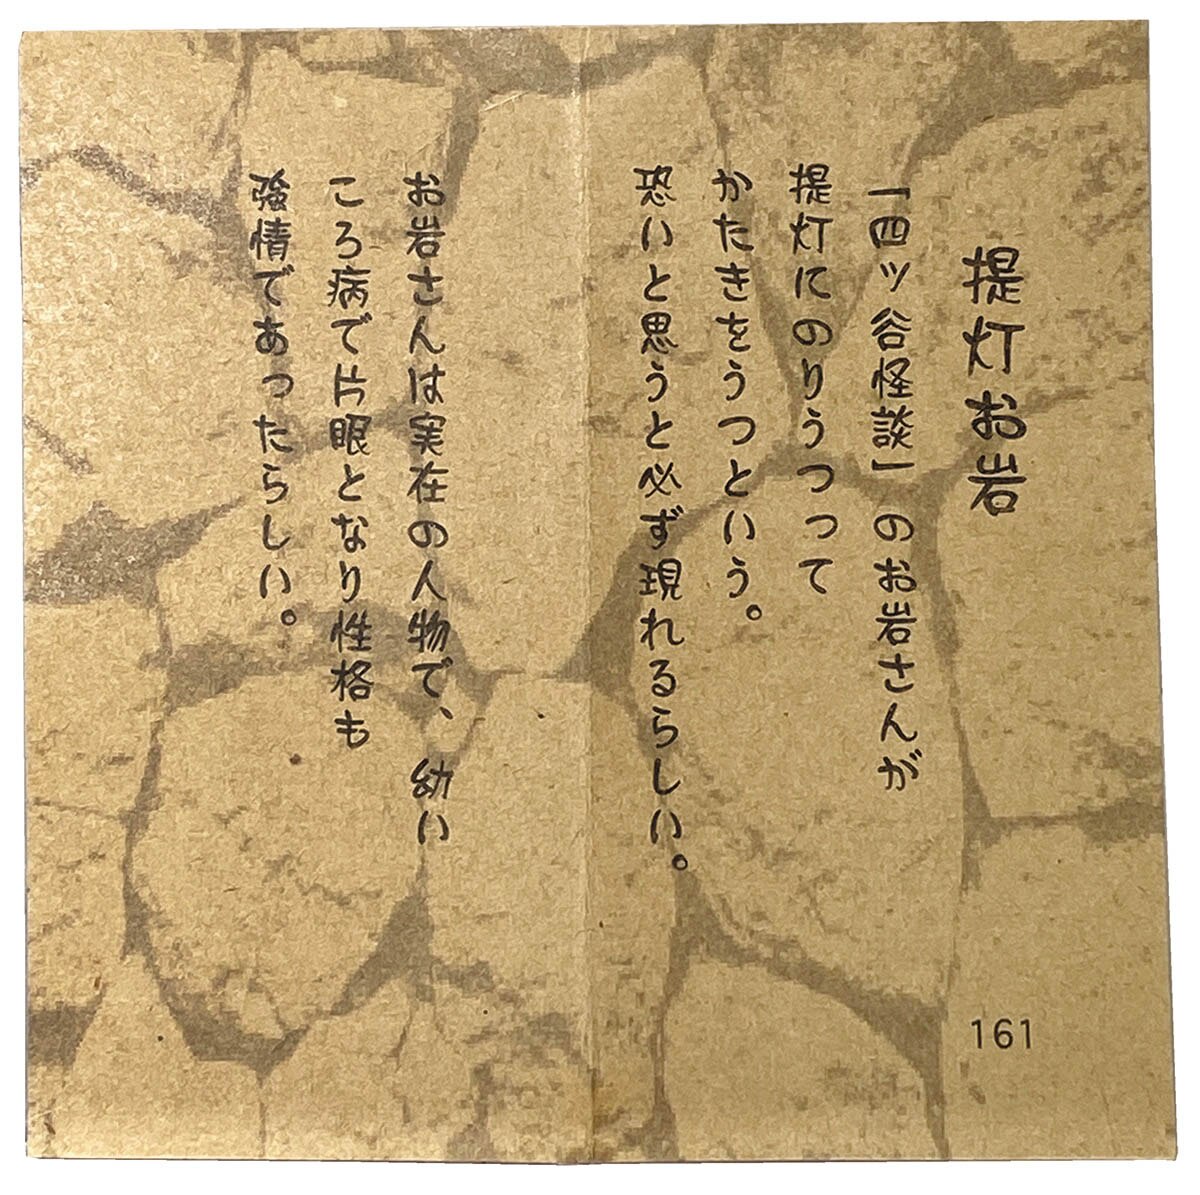 提灯お岩
「四ッ谷怪談」のお岩さんが
提灯にのりうつって
かたきをうつという。
恐いと思うと必ず現れるらしい。
お岩さんは実在の人物で、幼い
ころ病で片眼となり性格も
強情であったらしい。
161